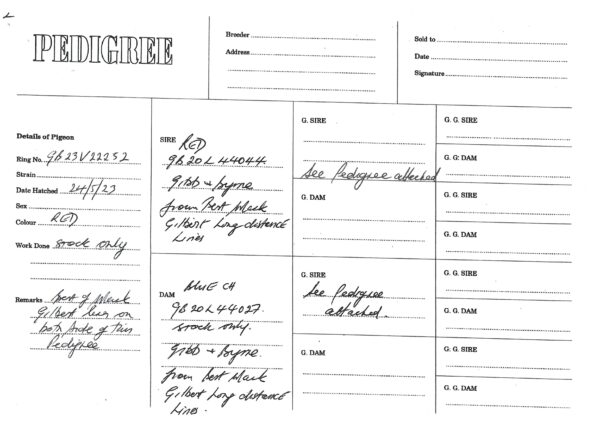 PEDIGREE
Breeder
Address
Sold to
Date
Signature
Details of Pigeon
Ring No. GB 23 V 22252
Strain
Date Hatched 24/5/23
Sex
Colour RED
Work Done stock only
Remarks best of Mark
Gilbert lines on
both side of this
Pedigree
SIRE RED
GB 20 L 44044
Gibb + Byrne
from Best Mark
Gilbert Long distance
Lines
DAM blue CH
GB 20 L 44027
stock only.
Gibb + Byrne.
from best Mark
Gilbert Long distance
Lines.
G. SIRE
See Pedigree attached
G. DAM
G. SIRE
See Pedigree
attached.
G. DAM
G. G. SIRE
G. G: DAM
G. G. SIRE
G. G. DAM
G. G. SIRE
G. G. DAM
G. G. SIRE
G. G. DAM